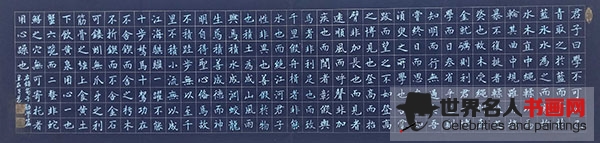 君子曰學不可以
已青取之於藍而青於
藍冰水為之而寒於
水木直中繩輮以為
輪其曲中規雖有槁
暴不復挺者輮使之
然也故木受繩則直
金就礪則利君子博
學而日參省乎己則
知明而行無過矣吾
嘗終日而思矣不如
須臾之所學也吾嘗
跂而望矣不如登高
之博見也登高而招
臂非加長也而見者
速順風而呼聲非加
疾也而聞者彰假輿
馬者非利足也而致
千里假舟楫者非能
水也而絕江河君子
性非異也善假於
物也積土成山風雨
興焉積水成淵蛟龍
生焉積善成德而神
明自得聖心備焉故
不積跬步無以至千
里不積小流無以成
江海騏驥一躍不能
十步駑馬十駕功在
不舍鍥而舍之朽木
不折鍥而不舍金石
可鏤蚓無爪牙之利
筋骨之強上食埃土
下飲黃泉用心一也
蟹六跪而二螯非蛇
鱔之穴無可寄託者
用心躁也
世界名人书画网
Celebrities and paintings